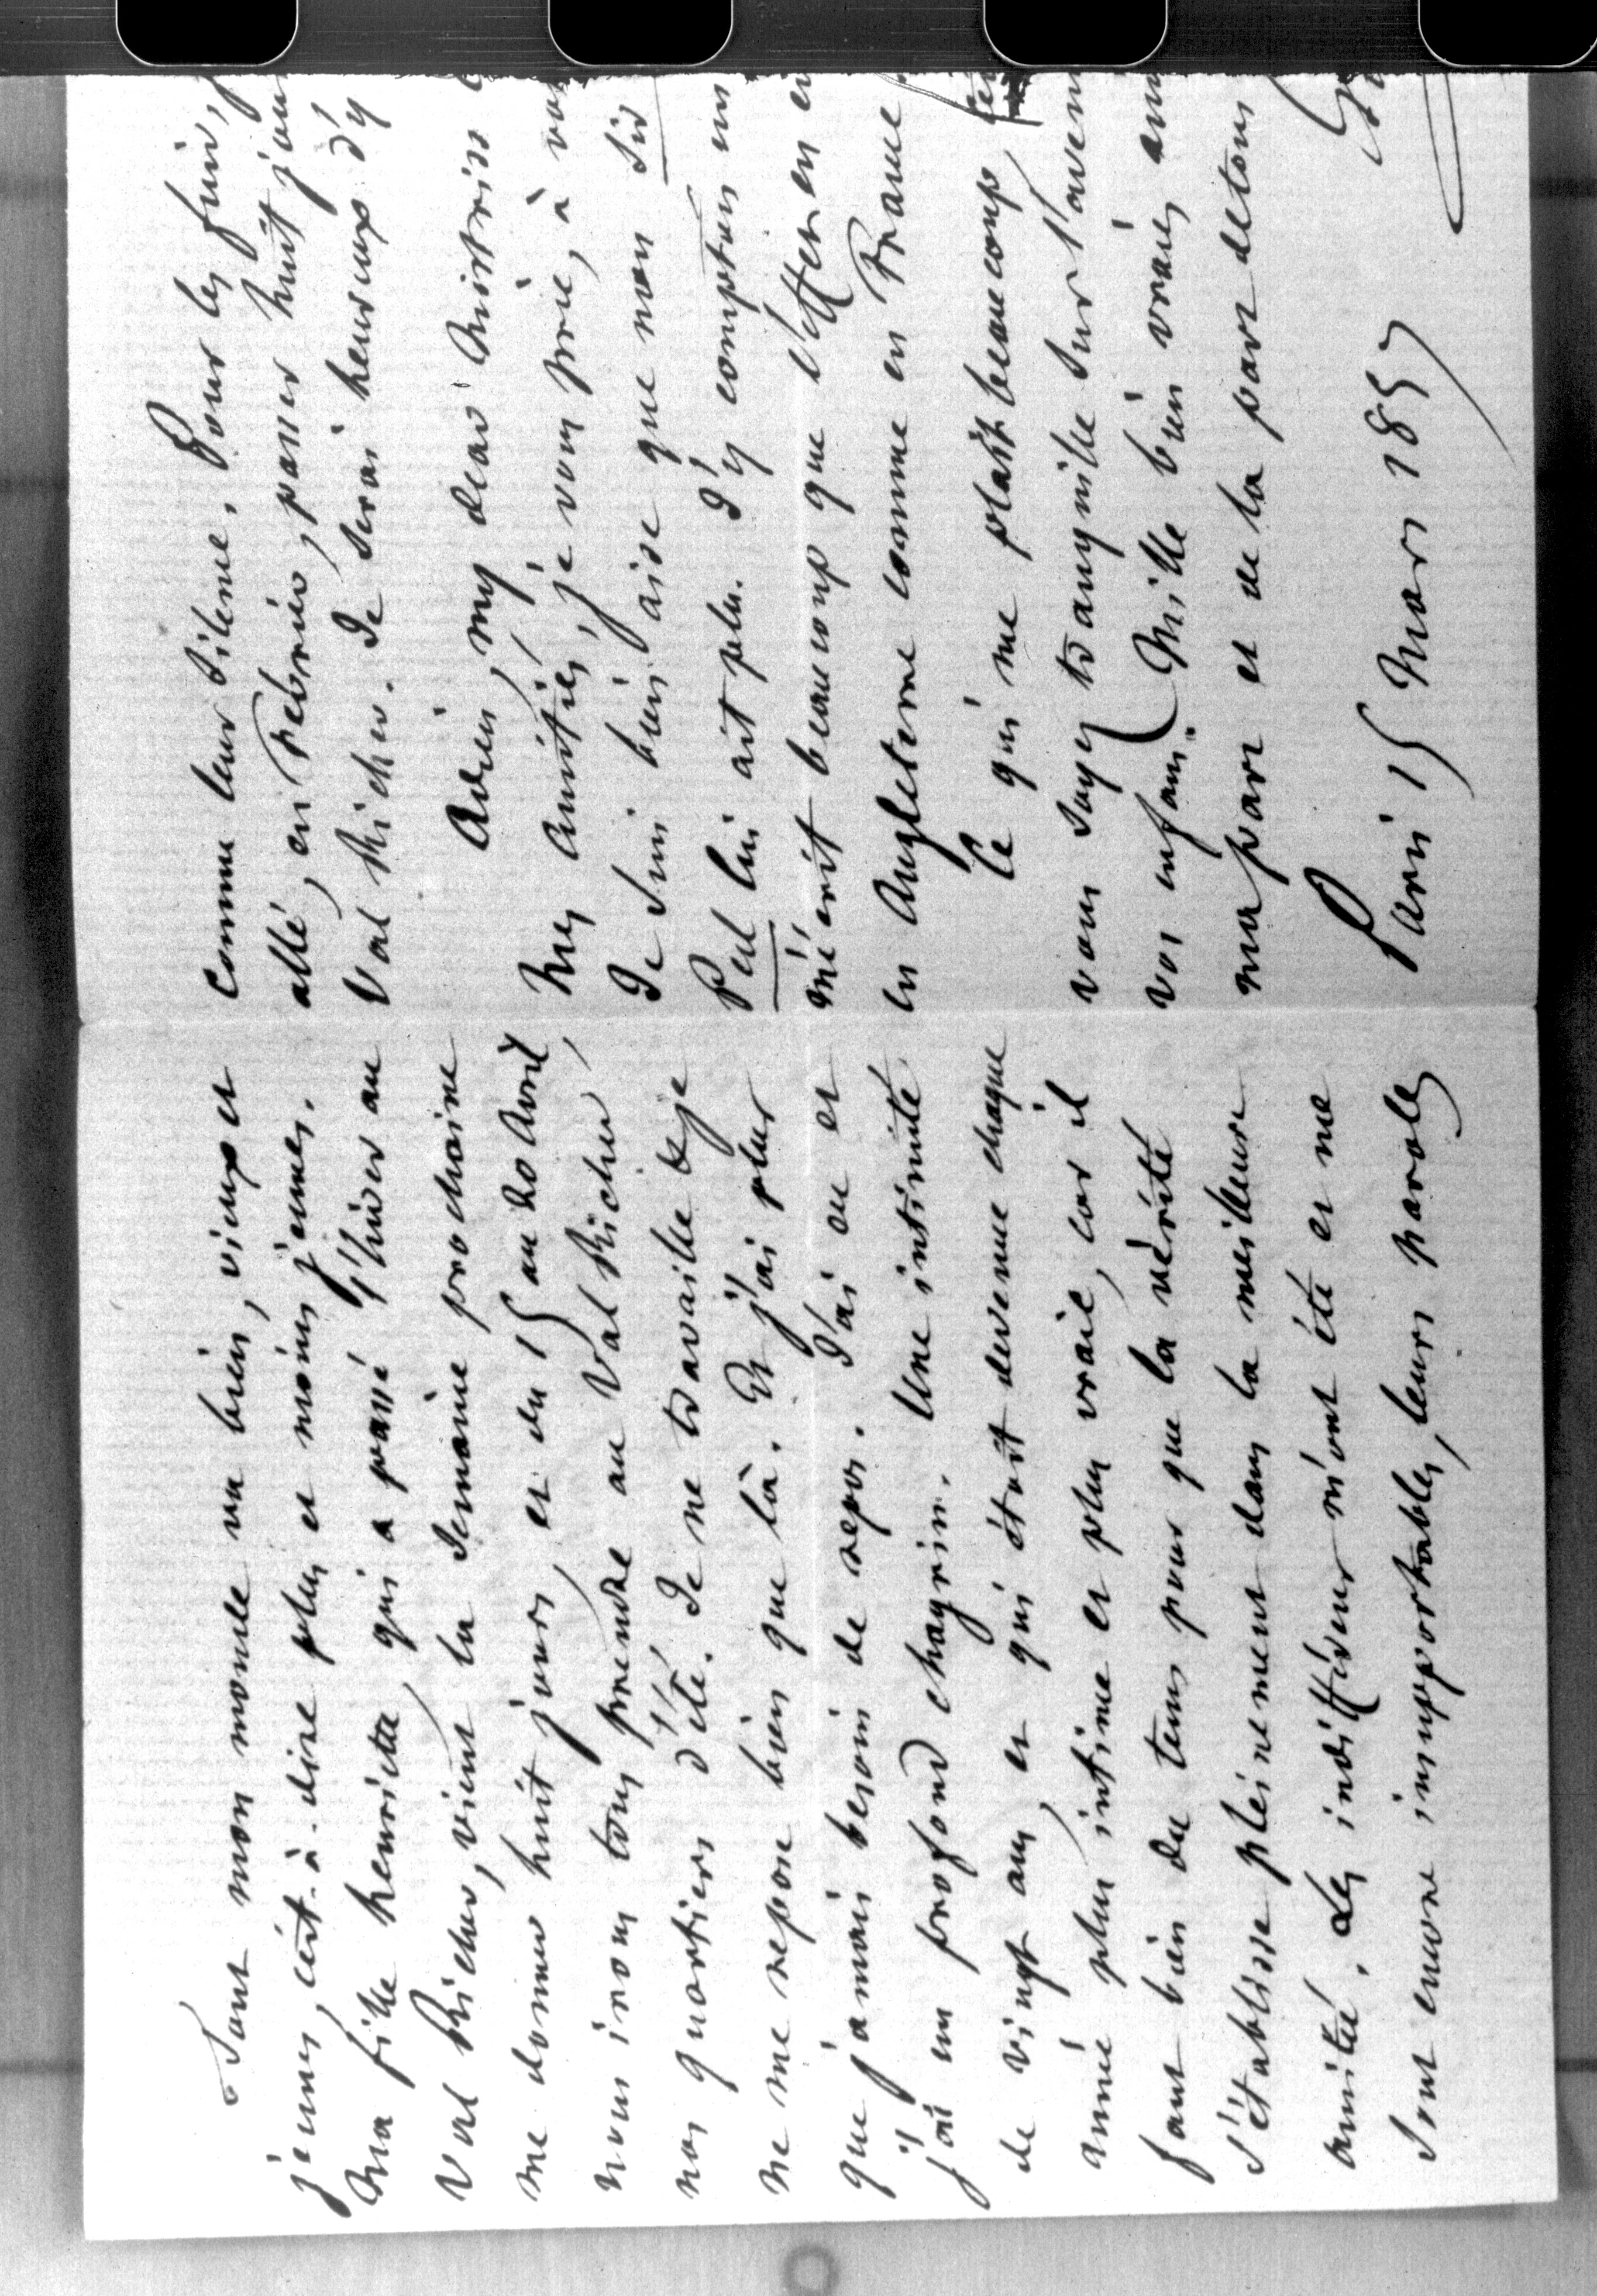 Tout mon monde va bien, vieux et
jeunes, c'est-à-dire plus et moins jeunes.
Ma fille henriette, qui a passé l'hiver au
Val Richer, vient la semaine prochaine
me donner huit jours, et du 15 au 20 avril,
nous irons tous prendre au Val Richer,
nos quartiers d'été. Je ne travaille &je
ne me repose bien que là. Et j'ai plus
que jamais besoin de repos. J'ai eu et
j'ai un profond chagrin. Une intimité
de vingt ans, et qui étoit devenue chaque
année plus intime et plus vraie, car il
faut bien du tems pour que la vérité
s'établisse pleinement dans la meilleure
amitié. Les indifférens m'ont été et me
sont encore insupportables, leurs paroles
comme leur silence. Pour les fuir,
allé, en Février, passer huit jour
Val Richer. Je serai heureux d'y
Adieu, my dear Mistriss
Mes amitiés, je vous prie, à vo
Je suis bien aise que mon Sir
Peel lui ait plu. J'y comptois un
m'écrit beaucoup que l'effet en e
en Angleterre comme en France
Ce qui me plaît beaucoup,
vous soyez tranquille sur l'aven
vos enfans. Mille bien vraies ami
ma part et de la part de tous
Paris 15 Mars 1857